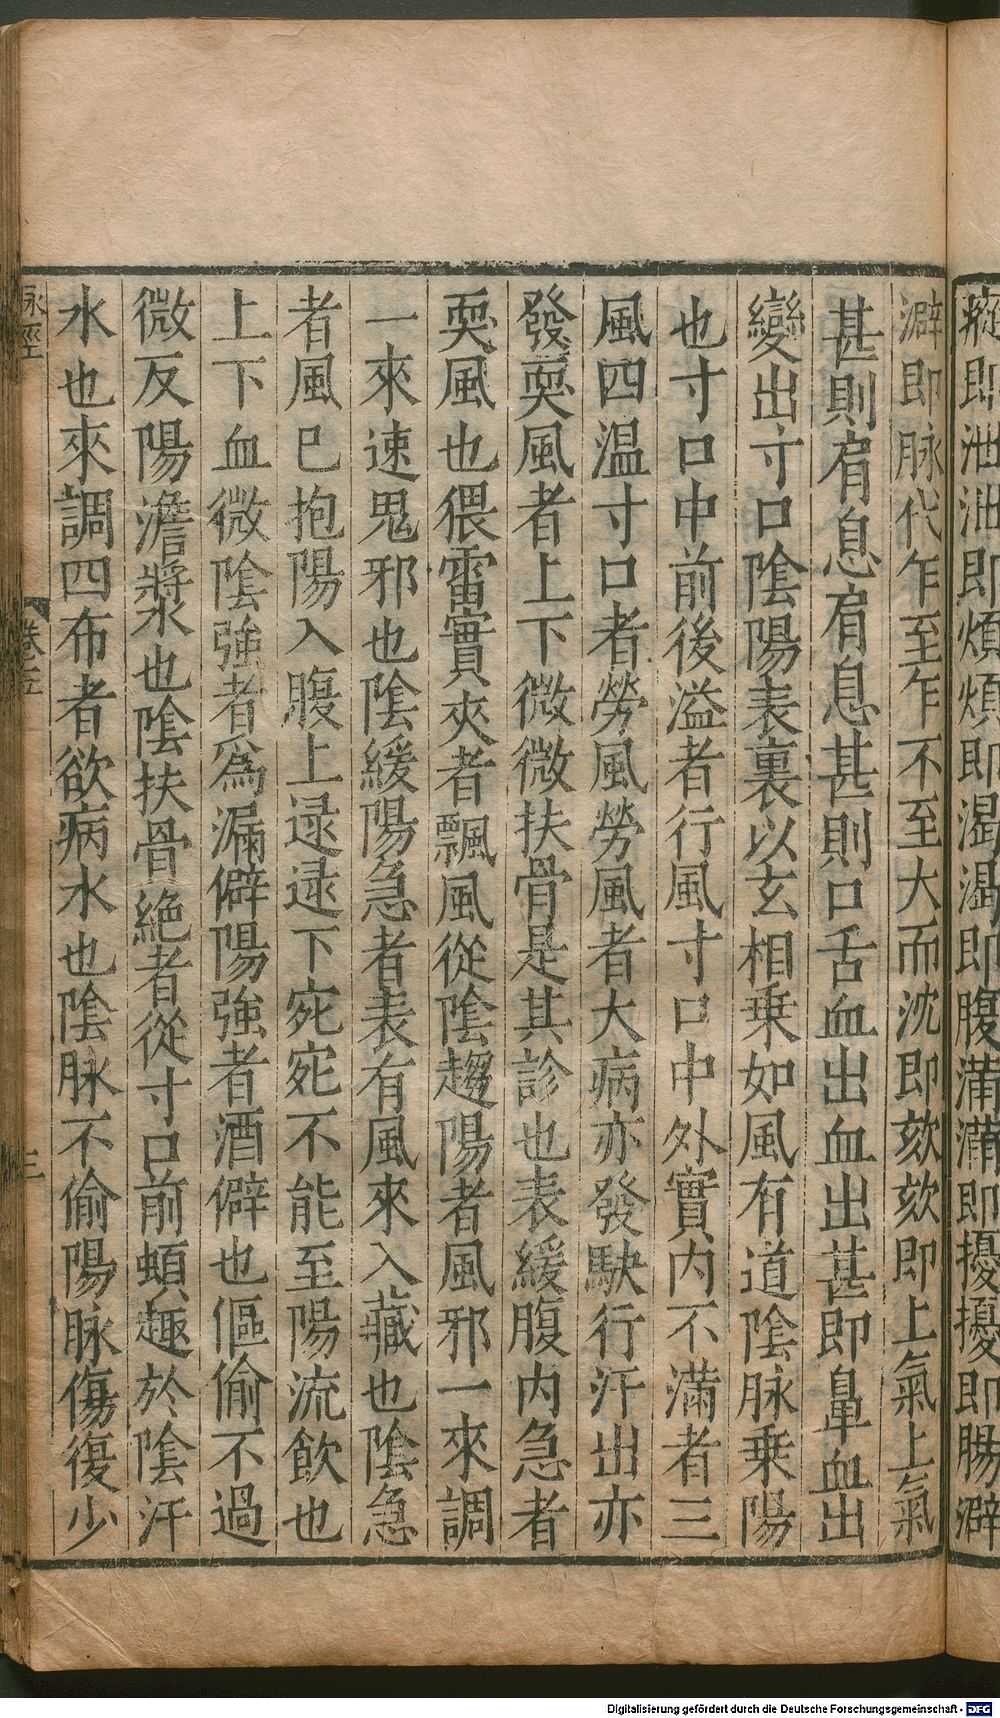 痴即泄泄即煩煩即渴渴即腹滿滿即擾擾即腸澼
澼即脉代乍至乍不至大而沈即欬欬即上氣上氣
甚則肩息肩息甚則口舌血出血出甚即鼻血出
變出寸口陰陽表裏以玄相乗如風有道陰脉乗陽
也寸口中前後溢者行風寸口中外實内不滿者三
風四温寸口者勞風勞風者大病亦發駃行汗出亦
發耎風者上下微微扶骨是其診也表緩腹内急者
耎風也猥雷實夾者飄風從陰趨陽者風邪一來調
一來速鬼邪也陰緩陽急者表有風來入藏也陰急
者風巳抱陽入腹上逯逯下宛宛不能至陽流飲也
上下血微陰強者爲漏僻陽強者酒僻也傴偷不過
微反陽澹漿也陰扶骨絶者從寸口前頓趣於陰汗
水也來調四布者欲病水也陰脉不偷陽脉傷復少
脉經 卷之五 三
Digitalisierung gefördert durch die Deutsche Forschungsgemeinschaft - DFG